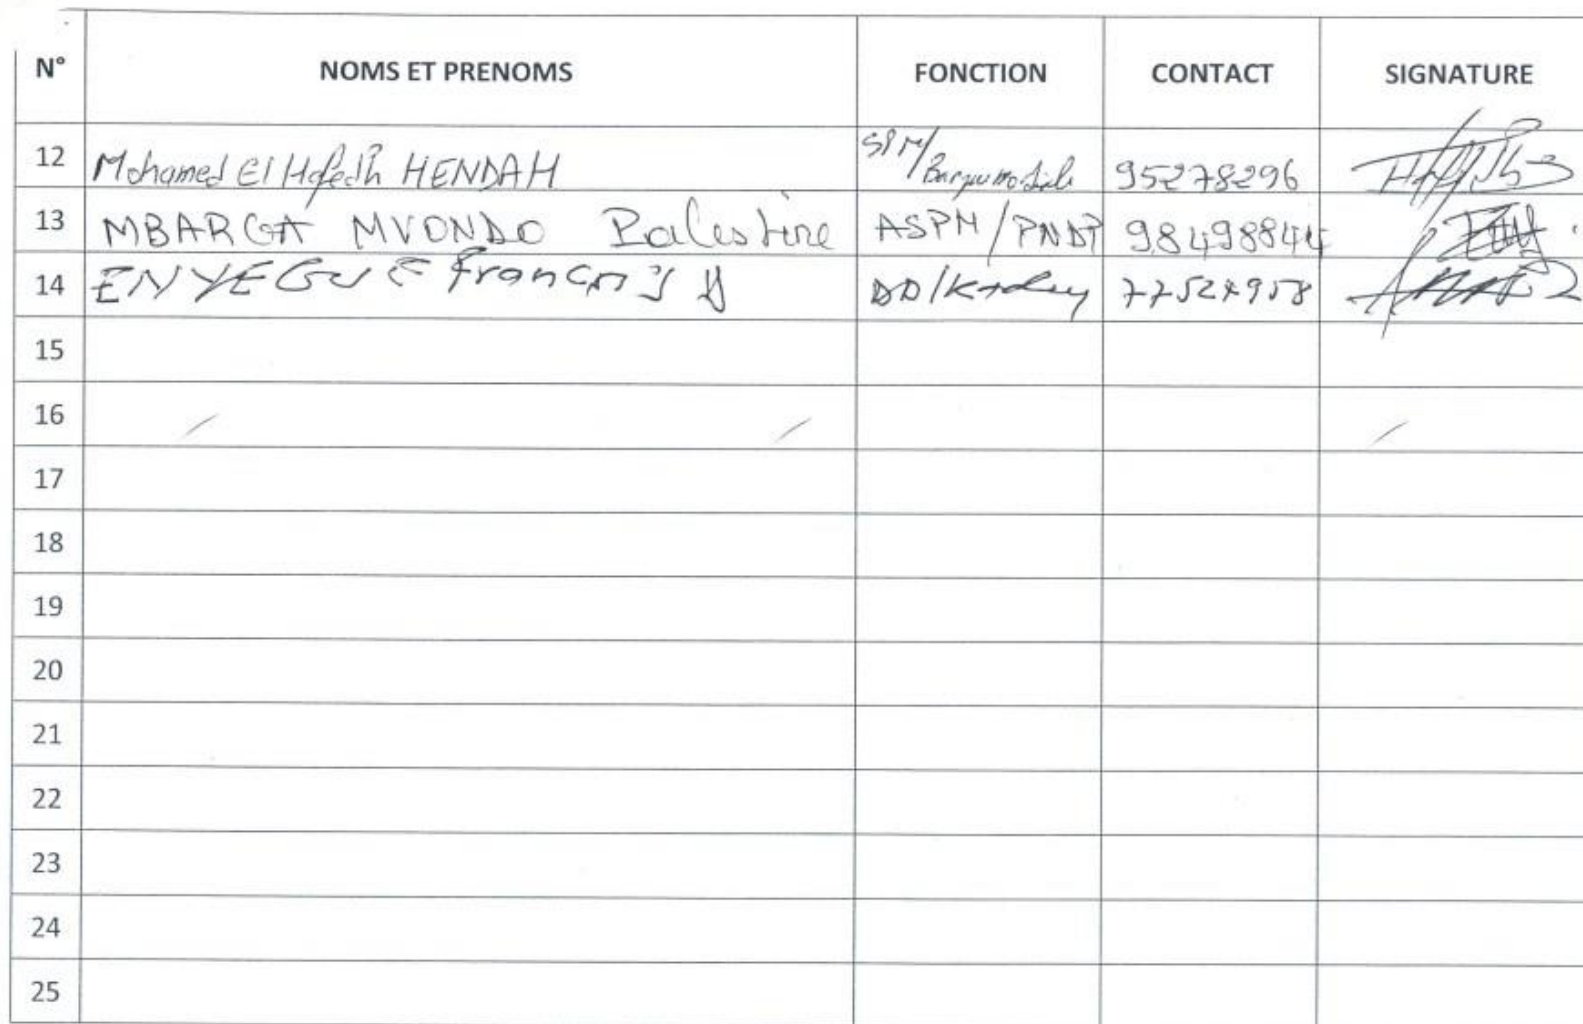 N° NOMS ET PRENOMS FONCTION CONTACT SIGNATURE
12 Mohamed El Hafedh HENDAH SPM/Banque mondiale 95278296
13 MBARGA MVONDO Palestine ASPM/PNDP 98498844
14 ENYEGUE Francis D DD/Kadey 77524958
15
16
17
18
19
20
21
22
23
24
25